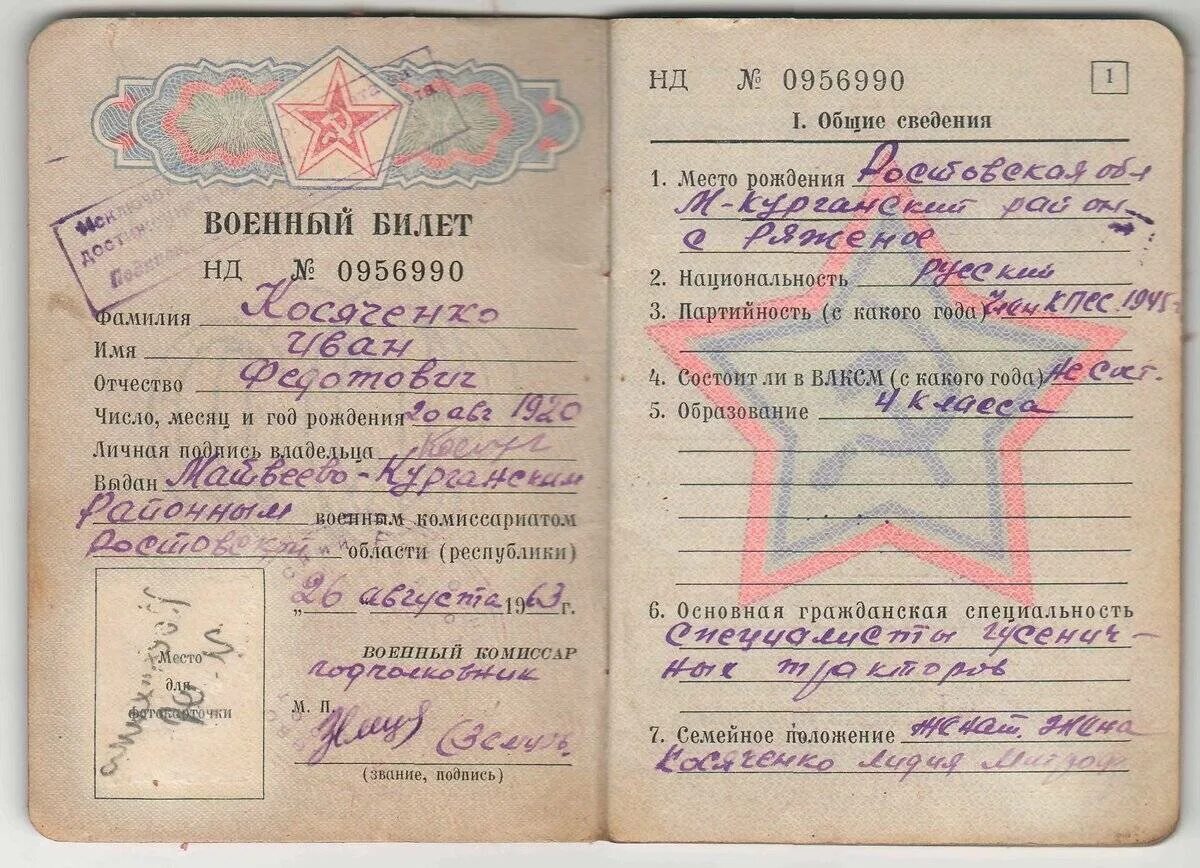 Исключен
достижении
ВОЕННЫЙ БИЛЕТ
НД № 0956990
Фамилия Косяченко
Имя Иван
Отчество Федотович
Число, месяц и год рождения 20 авг 1920
Личная подпись владельца
Выдан Матвеево-Курганским
Районным военным комиссариатом
Ростовской области (республики)
„26 августа 1963 г.
ВОЕННЫЙ КОМИССАР
подполковник
М. П.
(звание, подпись)
Место
для
фотокарточки
НД № 0956990
1
I. Общие сведения
1. Место рождения Ростовская обл
М-Курганский район
с Ряженое
2. Национальность русский
3. Партийность (с какого года) член КПСС 1945 г
4. Состоит ли в ВЛКСМ (с какого года) Не сост.
5. Образование 4 класса
6. Основная гражданская специальность
Специалисты гусенич-
ных тракторов
7. Семейное положение Женат. Жена
Косяченко Лидия